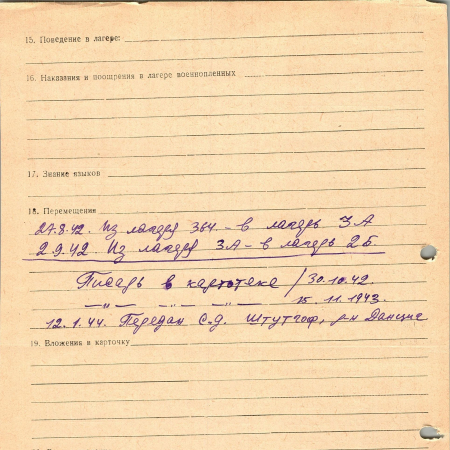 15. Поведение в лагере:
16. Наказания и поощрения в лагере военнопленных
17. Знание языков
18. Перемещения
27.8.42. Из лагеря 364 - в лагерь 3А
2.9.42. Из лагеря 3А - в лагерь 2Б.
Писарь в картотеке / 30.10.42.
—„— —„— —„— 15.11.1943.
12.1.44. Передан С.Д. Штутгоф, р-н Данциг
19. Вложения в карточку